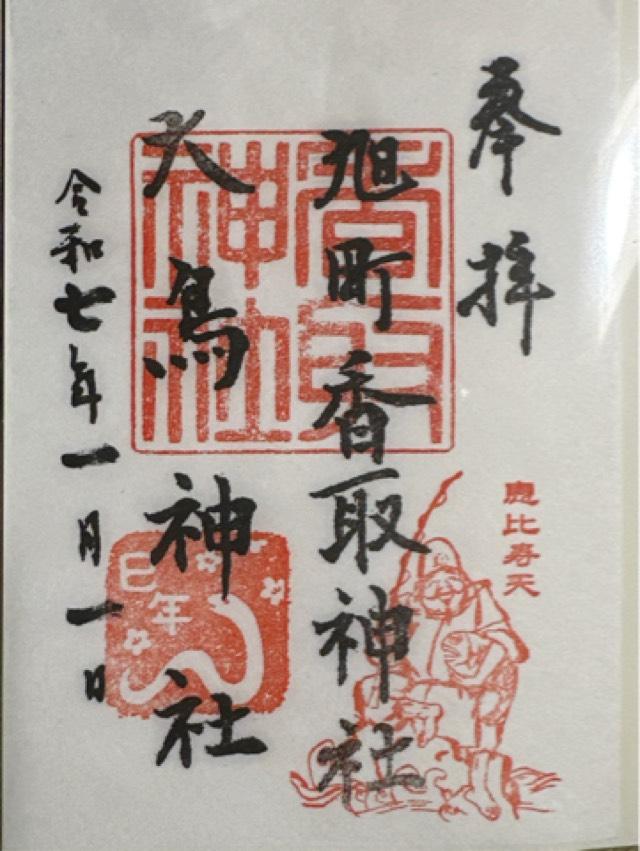 奉拝
恵比寿天
旭町香取神社
香取神社
大鳥神社
巳年
令和七年一月一日